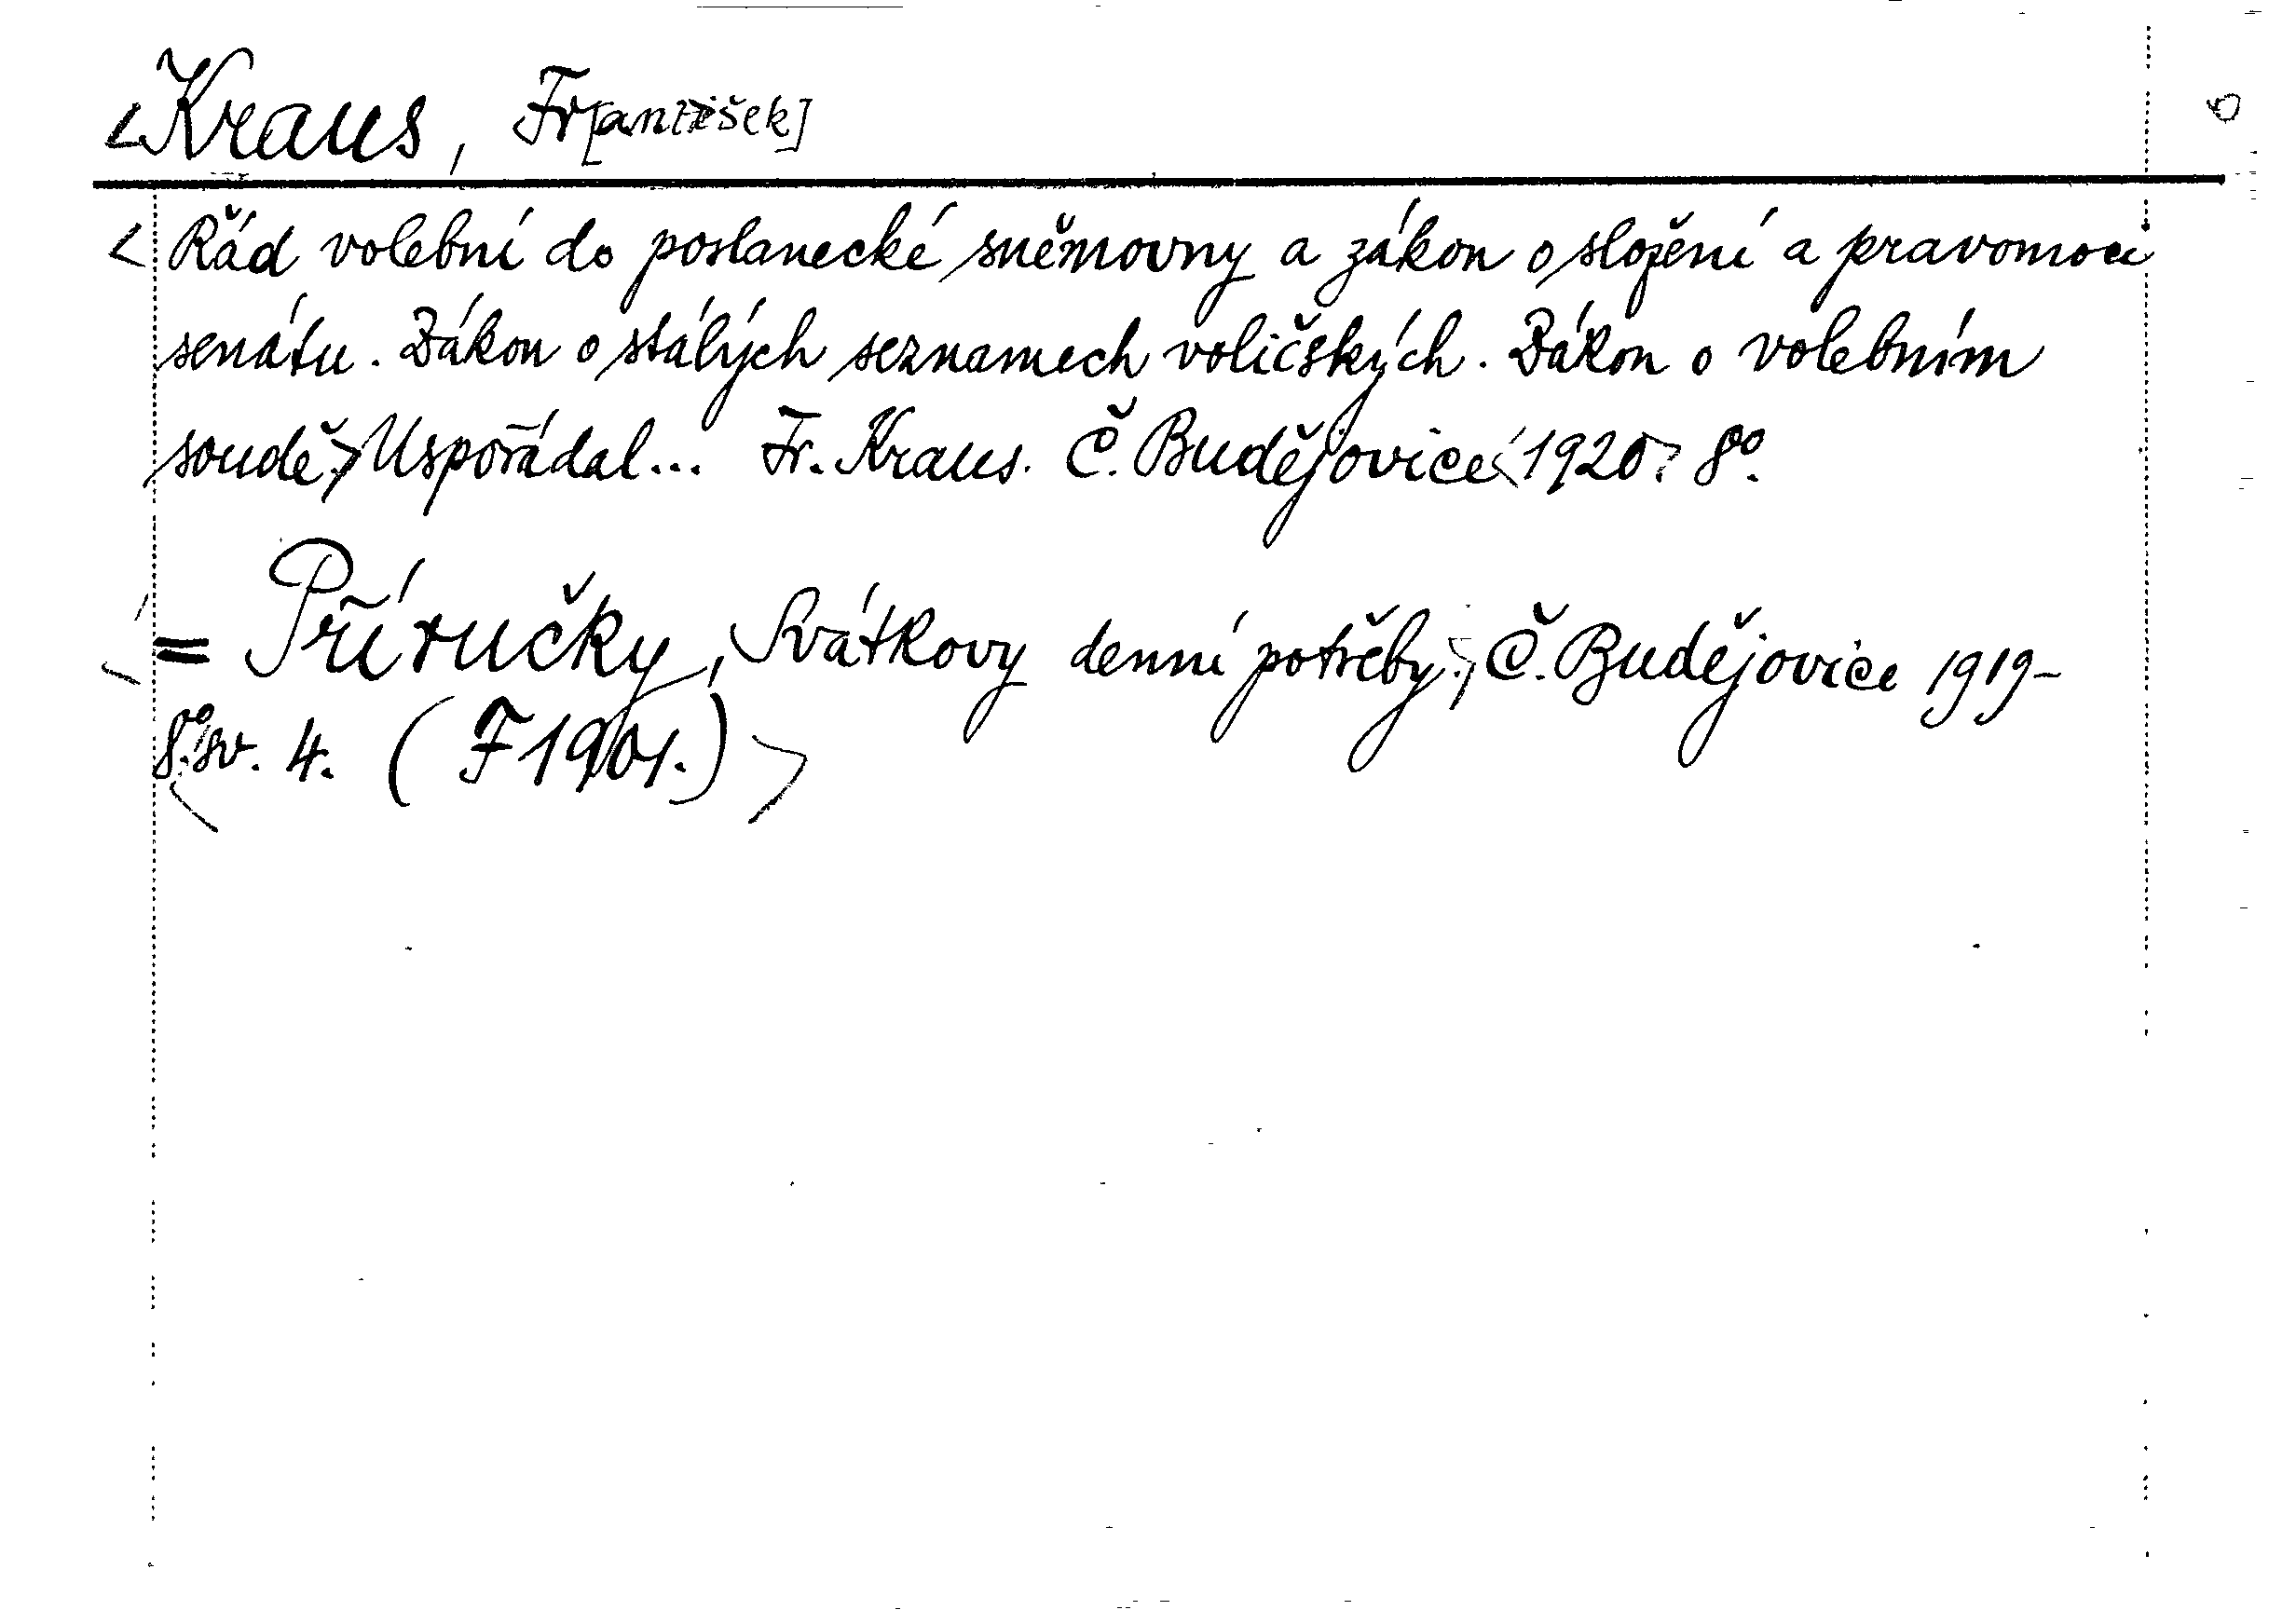 <Kraus, Fr[antišek]
<Řád volební do poslanecké sněmovny a zákon o složení a pravomoci
senátu. Zákon o stálých seznamech voličských. Zákon o volebním
soudě.> Uspořádal... Fr. Kraus. Č. Budějovice <1920> 8°.
<= Příručky, Svátkovy denní potřeby.> Č. Budějovice 1919-
8°. <sv. 4. (F 1901.)>